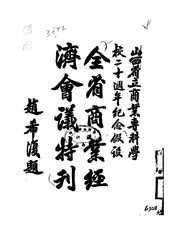 山西省立商業專科學
校二十週年紀念假設
全省商業經
濟會議特刊
趙希復題